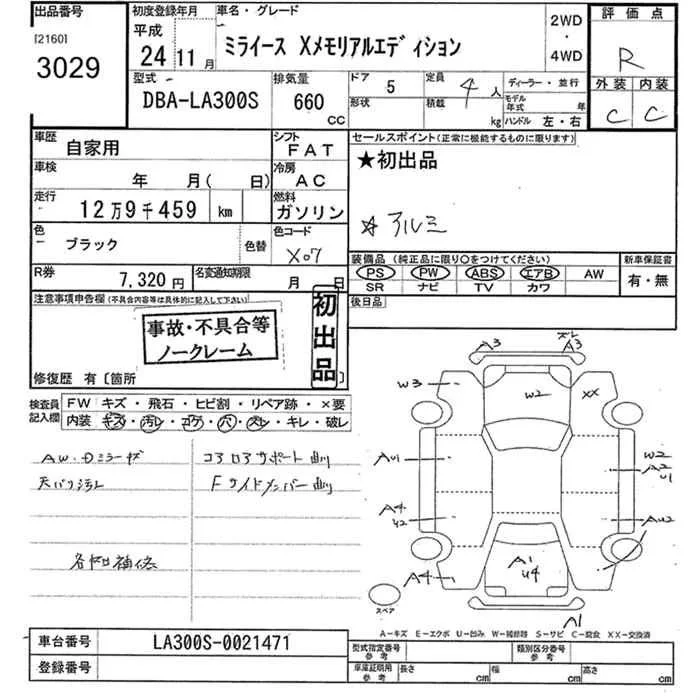 出品番号
[2160]
3029
初度登録年月
平成
24 11月
車名・グレード
ミライース Xメモリアルエディション
2WD
・
4WD
評価点
R
外装 内装
C C
型式
DBA-LA300S
排気量
660
CC
ドア 5
形状
定員 4人
積載 kg
ディーラー・並行
モデル年式 年
ハンドル 左・右
車歴
自家用
シフト
FAT
車検
年 月( 日)
冷房
AC
走行
12万9千459 km
燃料
ガソリン
色
ブラック
色替
色コード
X07
R券
7,320円
名変通知期限
月 日
セールスポイント(正常に機能するものに限ります)
★初出品
☆アルミ
装備品 (純正品に限り○をつけてください)
PS PW ABS エアB AW
SR ナビ TV カワ
新車保証書
有・無
後日品
注意事項申告欄(不具合内容等は具体的に記入して下さい)
事故・不具合等
ノークレーム
初出品
修復歴 有〔箇所 〕
検査員
記入欄
FW キズ・飛石・ヒビ割・リペア跡・×要
内装 キズ・汚レ・コゲ・穴・スレ・キレ・破レ
AW・Dミラーキズ
天バリ汚レ
各ヶ所補修
コアロアサポート曲り
Fサイドメンバー曲り
A3
ズレ
A3
W3
W2
XX
AU1
W2
A2
U1
A4
U2
AU2
A4
A1
U4
A1
スペア
A-キズ E-エクボ U-凹ミ W-補修跡 S-サビ C-腐食 XX-交換済
車台番号
LA300S-0021471
登録番号
型式指定番号
参考
類別区分番号
参考
車庫証明用
参考
長さ cm
幅 cm
高さ cm